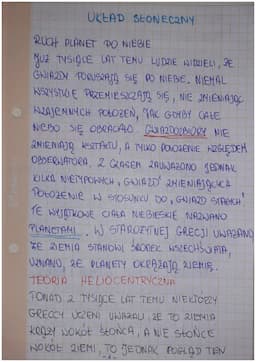 UKŁAD SŁONECZNY
RUCH PLANET PO NIEBIE
JUŻ TYSIĄCE LAT TEMU LUDZIE WIDZIELI, ŻE
GWIAZDY PORUSZAJĄ SIĘ PO NIEBIE. NIEMAL
WSZYSTKIE PRZEMIESZCZAJĄ SIĘ, NIE ZMIENIAJĄC
WZAJEMNYCH POŁOŻEŃ, JAK GDYBY CAŁE
NIEBO SIĘ OBRACAŁO. GWIAZDOZBIORY NIE
ZMIENIAJĄ KSZTAŁTU, A TYLKO POŁOŻENIE WZGLĘDEM
OBSERWATORA. Z CZASEM ZAUWAŻONO JEDNAK
KILKA NIETYPOWYCH „GWIAZD" ZMIENIAJĄCYCH
POŁOŻENIE W STOSUNKU DO „GWIAZD STAŁYCH"
TE WYJĄTKOWE CIAŁA NIEBIESKIE NAZWANO
PLANETAMI. W STAROŻYTNEJ GRECJI UWAŻANO
ŻE ZIEMIA STANOWI ŚRODEK WSZECHŚWIATA,
UZNANO, ŻE PLANETY OKRĄŻAJĄ ZIEMIĘ.
TEORIA HELIOCENTRYCZNA
PONAD 2 TYSIĄCE LAT TEMU NIEKTÓRZY
GRECCY UCZENI UWAŻALI, ŻE TO ZIEMIA
KRĄŻY WOKÓŁ SŁOŃCA, A NIE SŁOŃCE
WOKÓŁ ZIEMI, TO JEDNAK POGLĄD TEN